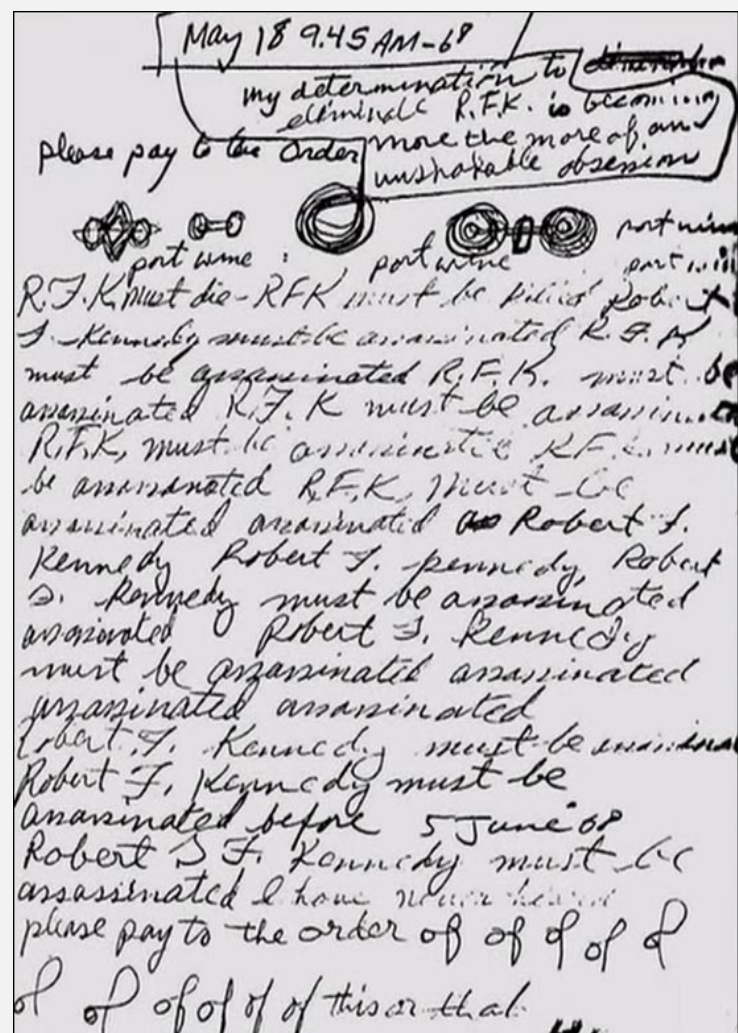 May 18 9.45 AM-68
my determination to
eliminate R.F.K. is becoming
please pay to the order
more the more of an
unshakable obsession
port wine
port wine : port wine port
R.F.K must die - RFK must be killed Robert
F. Kennedy must be assassinated R.F.K
must be assassinated R.F.K. must be
assassinated R.F.K must be assassinated
R.F.K, must be assassinated R.F.K. must
be assassinated R.F.K, Must be
assassinated assassinated Robert F.
Kennedy Robert F. Kennedy, Robert
F. Kennedy must be assassinated
assassinated Robert F. Kennedy
must be assassinated assassinated
assassinated assassinated
Robert F. Kennedy must be
Robert F. Kennedy must be
assassinated before 5 June 68
Robert F. Kennedy must be
assassinated I have never heard
please pay to the order of of of of of
of of of of of of of this or that